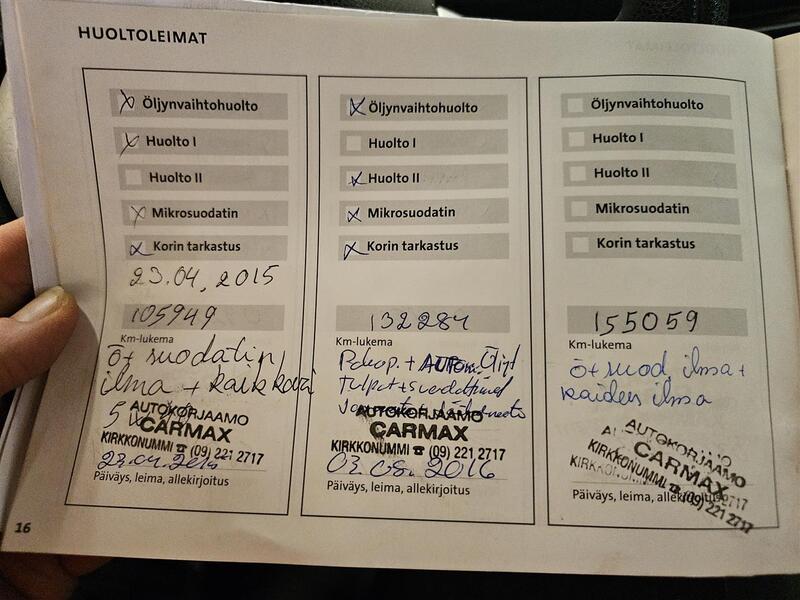 HUOLTOLEIMAT
Öljynvaihtohuolto
Huolto I
Huolto II
Mikrosuodatin
Korin tarkastus
23.04, 2015
105949
Km-lukema
ö+ suodatin,
ilma +
5
AUTOKORJAAMO
CARMAX
KIRKKONUMMI ☎ (09) 221 2717
23.04.2015
Päiväys, leima, allekirjoitus
Öljynvaihtohuolto
Huolto I
Huolto II
Mikrosuodatin
Korin tarkastus
132284
Km-lukema
+ Öljyt
Tulpat+suodattimet
AUTOKORJAAMO
CARMAX
KIRKKONUMMI ☎ (09) 221 2717
03.08.2016
Päiväys, leima, allekirjoitus
Öljynvaihtohuolto
Huolto I
Huolto II
Mikrosuodatin
Korin tarkastus
155059
Km-lukema
ö+suod ilma+
raiden ilma
AUTOKORJAAMO
CARMAX
KIRKKONUMMI ☎ (09) 221 2717
Päiväys, leima, allekirjoitus
16